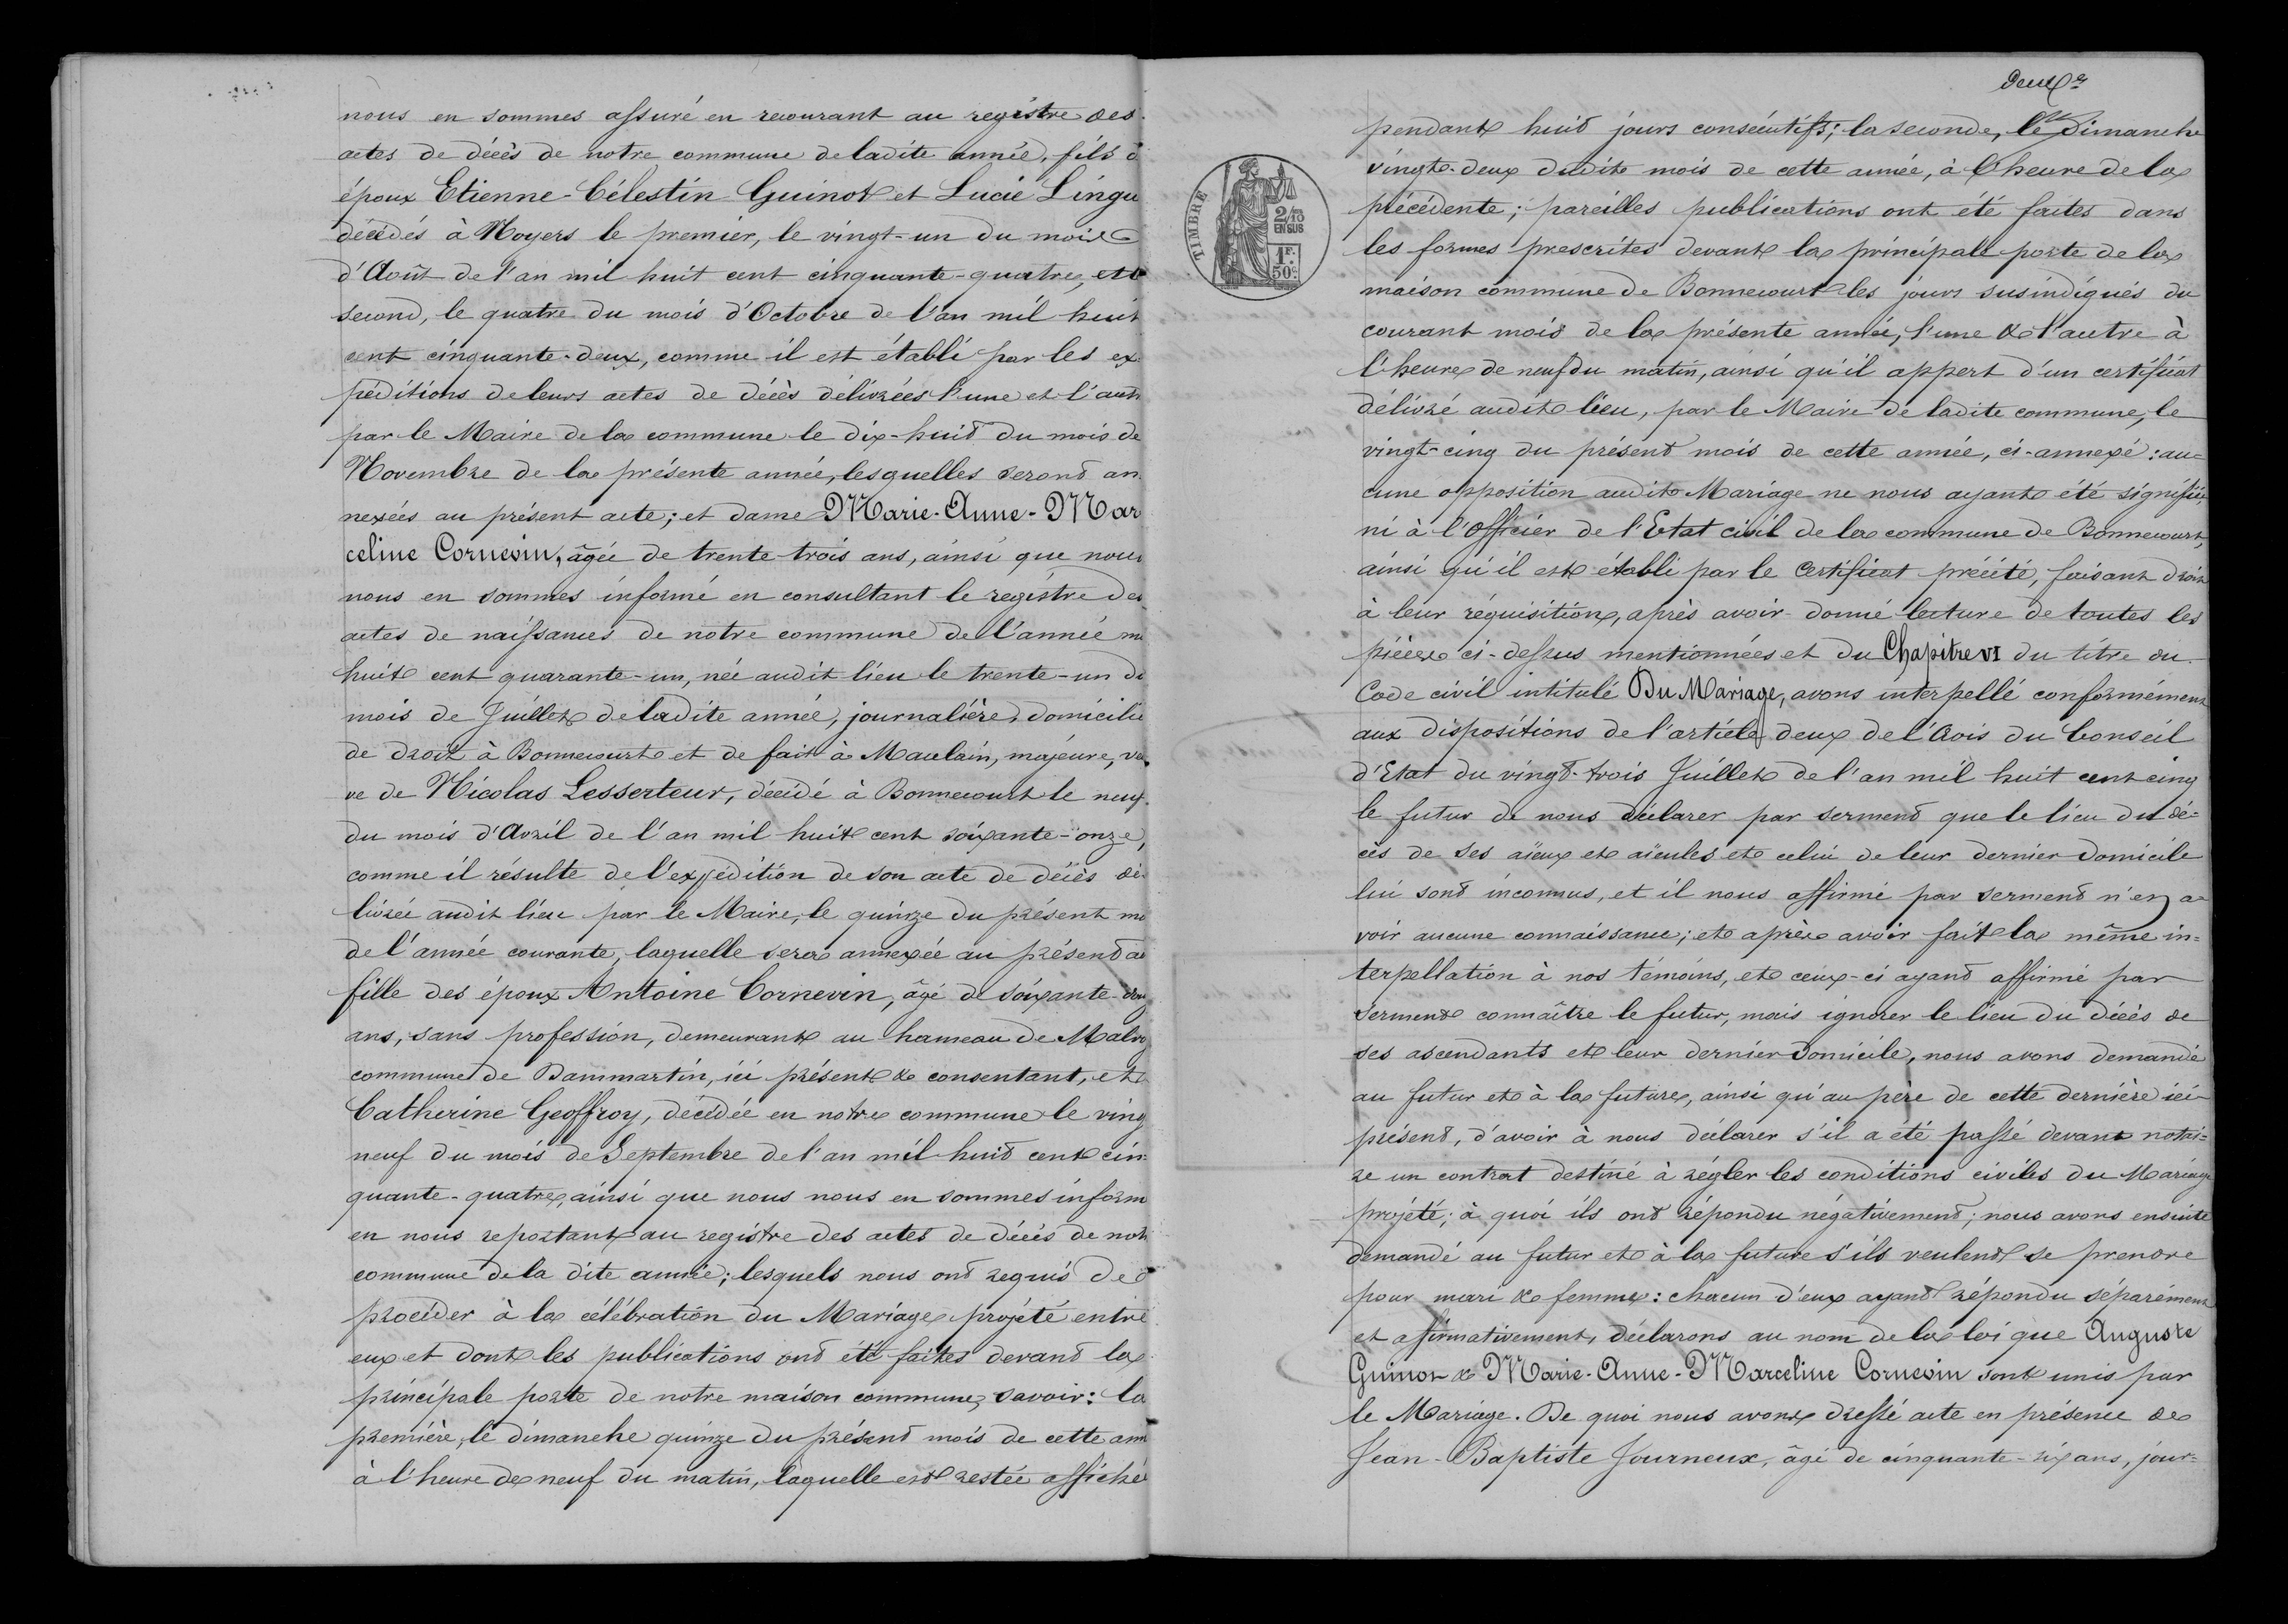 nous en sommes assuré en recourant au registre des
actes de décès de notre commune de ladite année, fils d
époux Etienne-Célestin Guinot et Lucie Lingu
décédés à Noyers le premier, le vingt-un du mois
d'Août de l'an mil huit cent cinquante-quatre, et
second, le quatre du mois d'Octobre de l'an mil huit
cent cinquante-deux, comme il est établi par les ex
péditions de leurs actes de décès délivrées l'une et l'autr
par le Maire de la commune le dix-huit du mois de
Novembre de la présente année, lesquelles seront an
nexées au présent acte; et dame Marie-Anne-Mar
celine Cornevin, âgée de trente-trois ans, ainsi que nous
nous en sommes informé en consultant le registre des
actes de naissances de notre commune de l'année m
huit cent quarante-un, née audit lieu le trente-un du
mois de Juillet de ladite année, journalière, domicilié
de droit à Bonnecourt et de fait à Maulain, majeure, veu
ve de Nicolas Lesserteur, décédé à Bonnecourt le neuf
du mois d'Avril de l'an mil huit cent soixante-onze,
comme il résulte de l'expédition de son acte de décès dé
livrée audit lieu par le Maire, le quinze du présent mo
de l'année courante, laquelle sera annexée au présent ac
fille des époux Antoine Cornevin, âgé de soixante-
ans, sans profession, demeurant au hameau de Malro
commune de Dammartin, ici présent & consentant, et
Catherine Geoffroy, décédée en notre commune le ving
neuf du mois de Septembre de l'an mil huit cent cin
quante-quatre, ainsi que nous nous en sommes inform
en nous reportant au registre des actes de décès de notr
commune de la dite année; lesquels nous ont requis de
procéder à la célébration du Mariage projeté entre
eux et dont les publications ont été faites devant la
principale porte de notre maison commune, savoir: la
première, le dimanche quinze du présent mois de cette ann
à l'heure de neuf du matin, laquelle est restée affichée
Deux
pendant huit jours consécutifs; la seconde, le Dimanche
vingt-deux dudit mois de cette année, à l'heure de la
précédente; pareilles publications ont été faites dans
les formes prescrites devant la principale porte de la
maison commune de Bonnecourt les jours susindiqués du
courant mois de la présente année, l'une & l'autre à
l'heure de neuf du matin, ainsi qu'il appert d'un certificat
délivré audit lieu, par le Maire de ladite commune, le
vingt-cinq du présent mois de cette année, ci-annexé: au=
cune opposition audit Mariage ne nous ayant été signifiée,
ni à l'Officier de l'Etat civil de la commune de Bonnecourt,
ainsi qu'il est établi par le Certificat précité, faisant droit
à leur réquisition, après avoir donné lecture de toutes les
pièces ci-dessus mentionnées et du Chapitre VI du titre du
Code civil intitulé Du Mariage, avons interpellé conformément
aux dispositions de l'article deux de l'Avis du Conseil
d'Etat du vingt-trois Juillet de l'an mil huit cent cinq
le futur de nous déclarer par serment que le lieu du dé=
cès de ses aïeux et aïeules et celui de leur dernier domicile
lui sont inconnus, et il nous affirmé par serment n'en a=
voir aucune connaissance; et après avoir fait la même in=
terpellation à nos témoins, et ceux-ci ayant affirmé par
serment connaître le futur, mais ignorer le lieu du décès de
ses ascendants et leur dernier domicile, nous avons demandé
au futur et à la future, ainsi qu'au père de cette dernière ici
présent, d'avoir à nous déclarer s'il a été passé devant notai=
re un contrat destiné à régler les conditions civiles du Mariage
projeté; à quoi ils ont répondu négativement; nous avons ensuite
demandé au futur et à la future s'ils veulent se prendre
pour mari & femme: chacun d'eux ayant répondu séparément
et affirmativement, déclarons au nom de la loi que Auguste
Guinot & Marie-Anne-Marceline Cornevin sont unis par
le Mariage. De quoi nous avons dressé acte en présence de
Jean-Baptiste Journeux, âgé de cinquante-six ans, jour=
TIMBRE
2/10
EN SUS
1F.
50c.